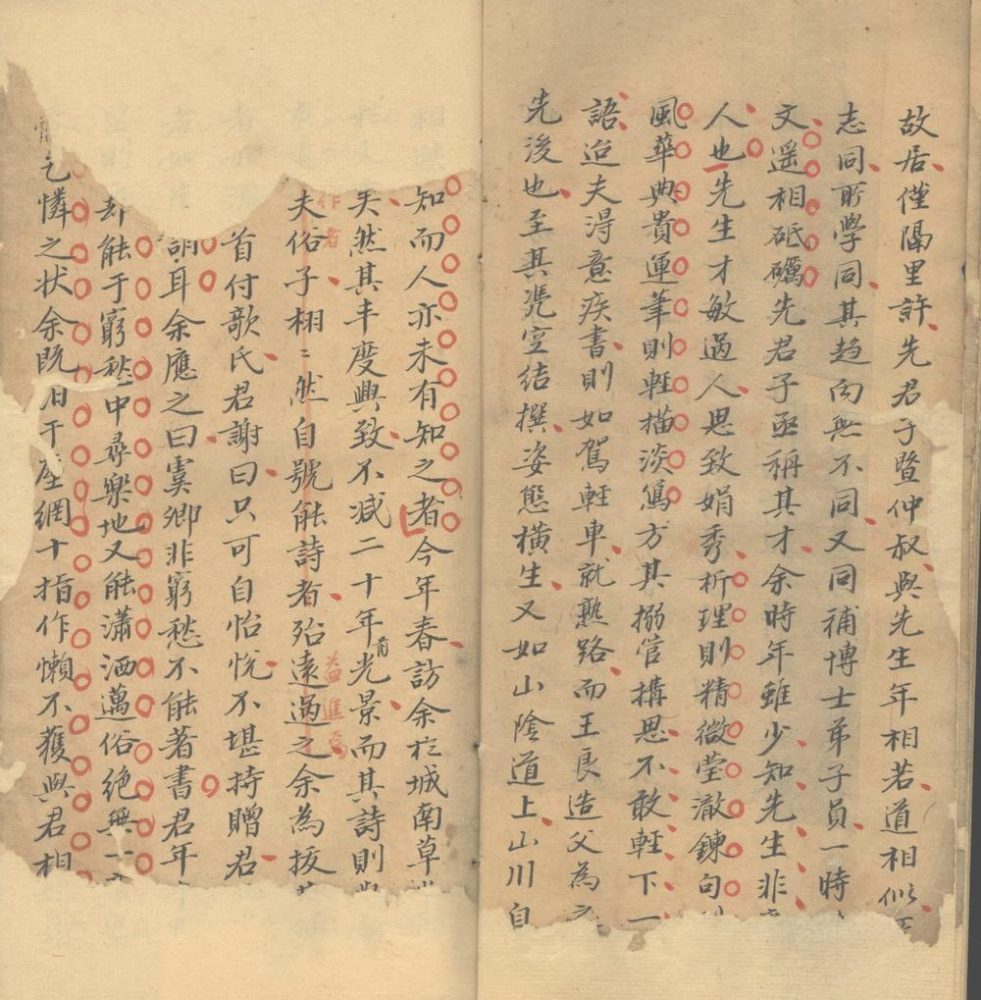 故居僅隔里許先君子暨仲叔與先生年相若道相似
志同所學同其趋向無不同又同補博士弟子員一時
文遥相砥礪先君子亟稱其才余時年雖少知先生非
人也先生才敏過人思致娟秀析理則精微瑩澈鍊句
風華典貴運筆則輕描淡寫方其搦管搆思不敢輕下一
語迨夫淂意疾書則如駕輕車就熟路而王良造父為之
先後也至其凴空結撰姿態橫生又如山陰道上山川自
知而人亦未有知之者今年春訪余於城南草
矣然其丰度興致不减二十年前光景而其詩則
作者
益進焉
夫俗子栩〻然自號能詩者殆遠過之余為援
首付歌氏君謝曰只可自怡悅不堪持贈君
耳余應之曰虞卿非窮愁不能著書君年
却能于窮愁中尋樂地又能瀟洒邁俗絕無一
乞憐之状余既汩于塵網十指作懶不獲與君相